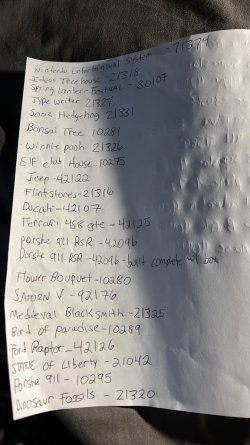 Nintendo Entertainment System - 71374
Ideas Treehouse 21318
Spring Lantern Festival - 80107
Type writer 21327
Sonic Hedgehog 21331
Bonsai Tree 10281
Winnie pooh 21326
Elf club House - 10275
Jeep - 42122
Flintstones - 21316
Ducati - 42107
Ferrari 458 gte - 42125
porshe 911 RSR - 42096
Porshe 911 RSR - 42096 - built complete w/ box
Flower Bouquet - 10280
SATURN V - 92176
Medieval Blacksmith - 21325
Bird of paradise - 10289
Ford Raptor - 42126
STATUE of Liberty - 21042
Porshe 911 - 10295
Dinosaur Fossils - 21320